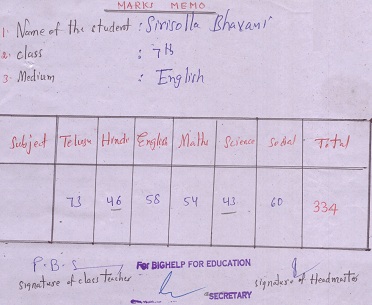 MARKS MEMO
1. Name of the student : Sirisolla Bhavani
2. class : 7th
3. Medium : English
Subject Telugu Hindi English Maths Science Social Total
73 46 58 54 43 60 334
P.B.S
signature of class teacher
For BIGHELP FOR EDUCATION
SECRETARY
signature of Headmaster